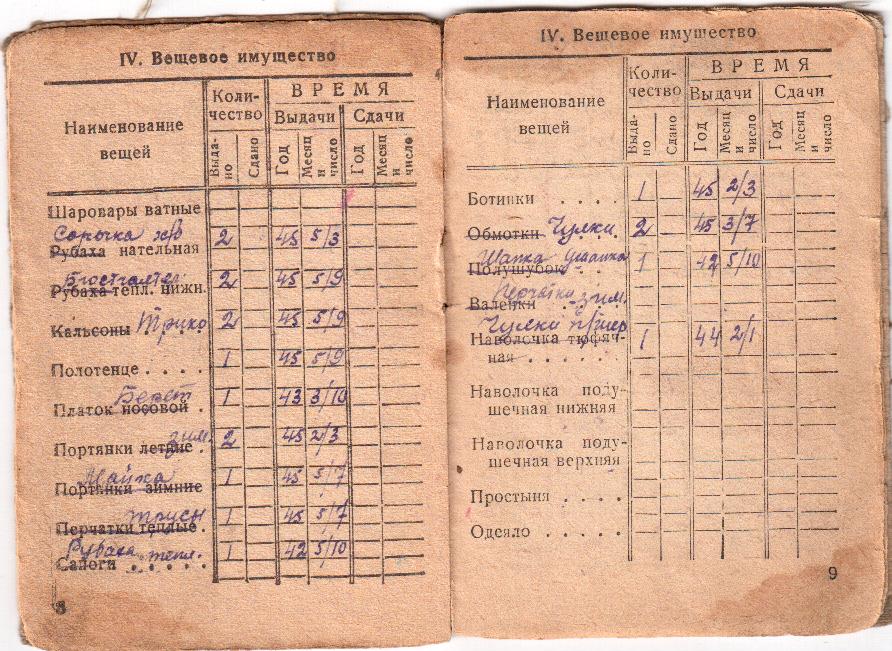 IV. Вещевое имущество
Наименование вещей
Количество
ВРЕМЯ
Выдачи Сдачи
Выдано Сдано Год Месяц и число Год Месяц и число
Шаровары ватные
Сорочка х/б
Рубаха нательная 2 45 5/3
Бюстгалтер
Рубаха тепл. нижн. 2 45 5/9
Кальсоны Трико 2 45 5/9
Полотенце . . . . 1 45 5/9
Берет
Платок носовой . 1 43 3/10
зим.
Портянки летние . 2 45 2/3
Майка
Портянки зимние 1 45 5/7
трусы
Перчатки теплые 1 45 5/7
Рубаха тепл.
Сапоги . . . . . 1 42 5/10
8
IV. Вещевое имущество
Наименование вещей
Количество
ВРЕМЯ
Выдачи Сдачи
Выдано Сдано Год Месяц и число Год Месяц и число
Ботинки . . . . 1 45 2/3
Обмотки Чулки 2 45 3/7
Шапка ушанка
Полушубок 1 42 5/10
Перчатки зим.
Валенки
Чулки
Наволочка тюфяч-
ная . . . . . 1 44 2/1
Наволочка поду-
шечная нижняя
Наволочка поду-
шечная верхняя
Простыня . . . .
Одеяло . . . . .
9